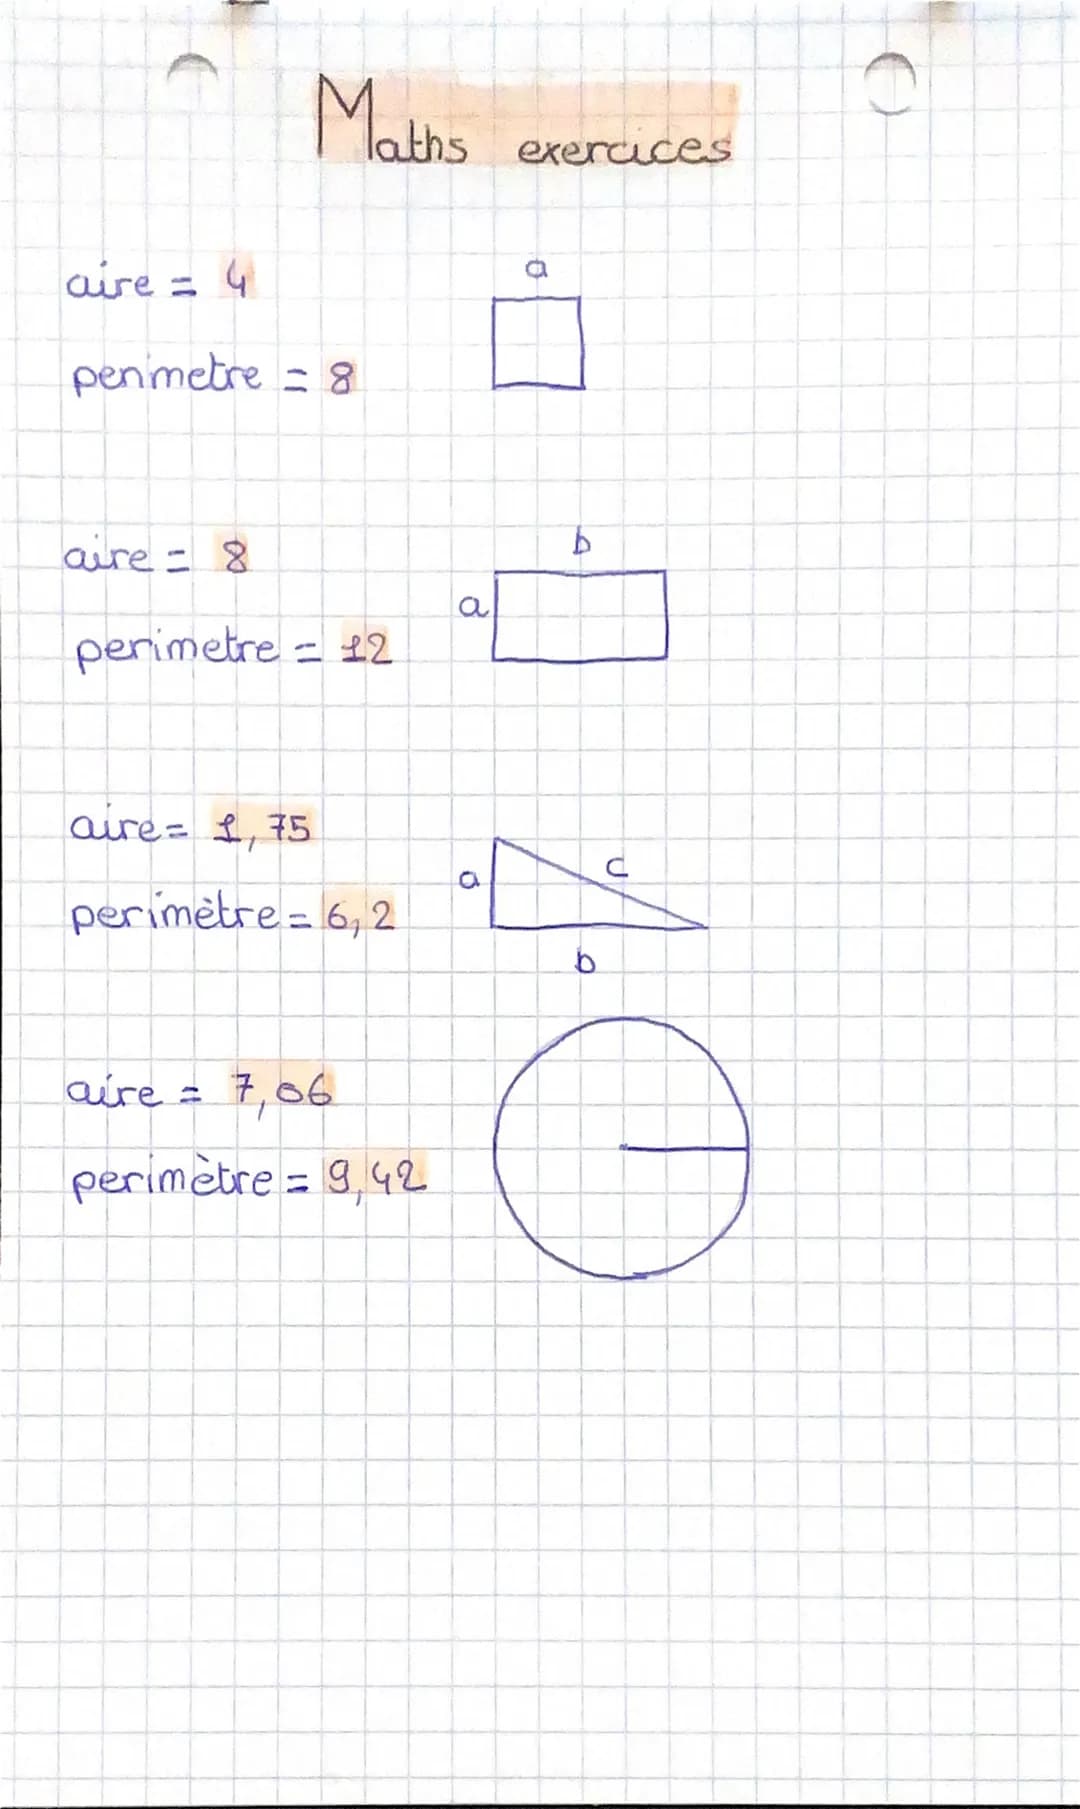 Maths exercices
a
aire = 4
perimetre = 8
b
aire = 8
a
perimetre = 12
aire= 1,75
c
a
perimètre= 6,2
b
aire = 7,06
perimètre = 9,42